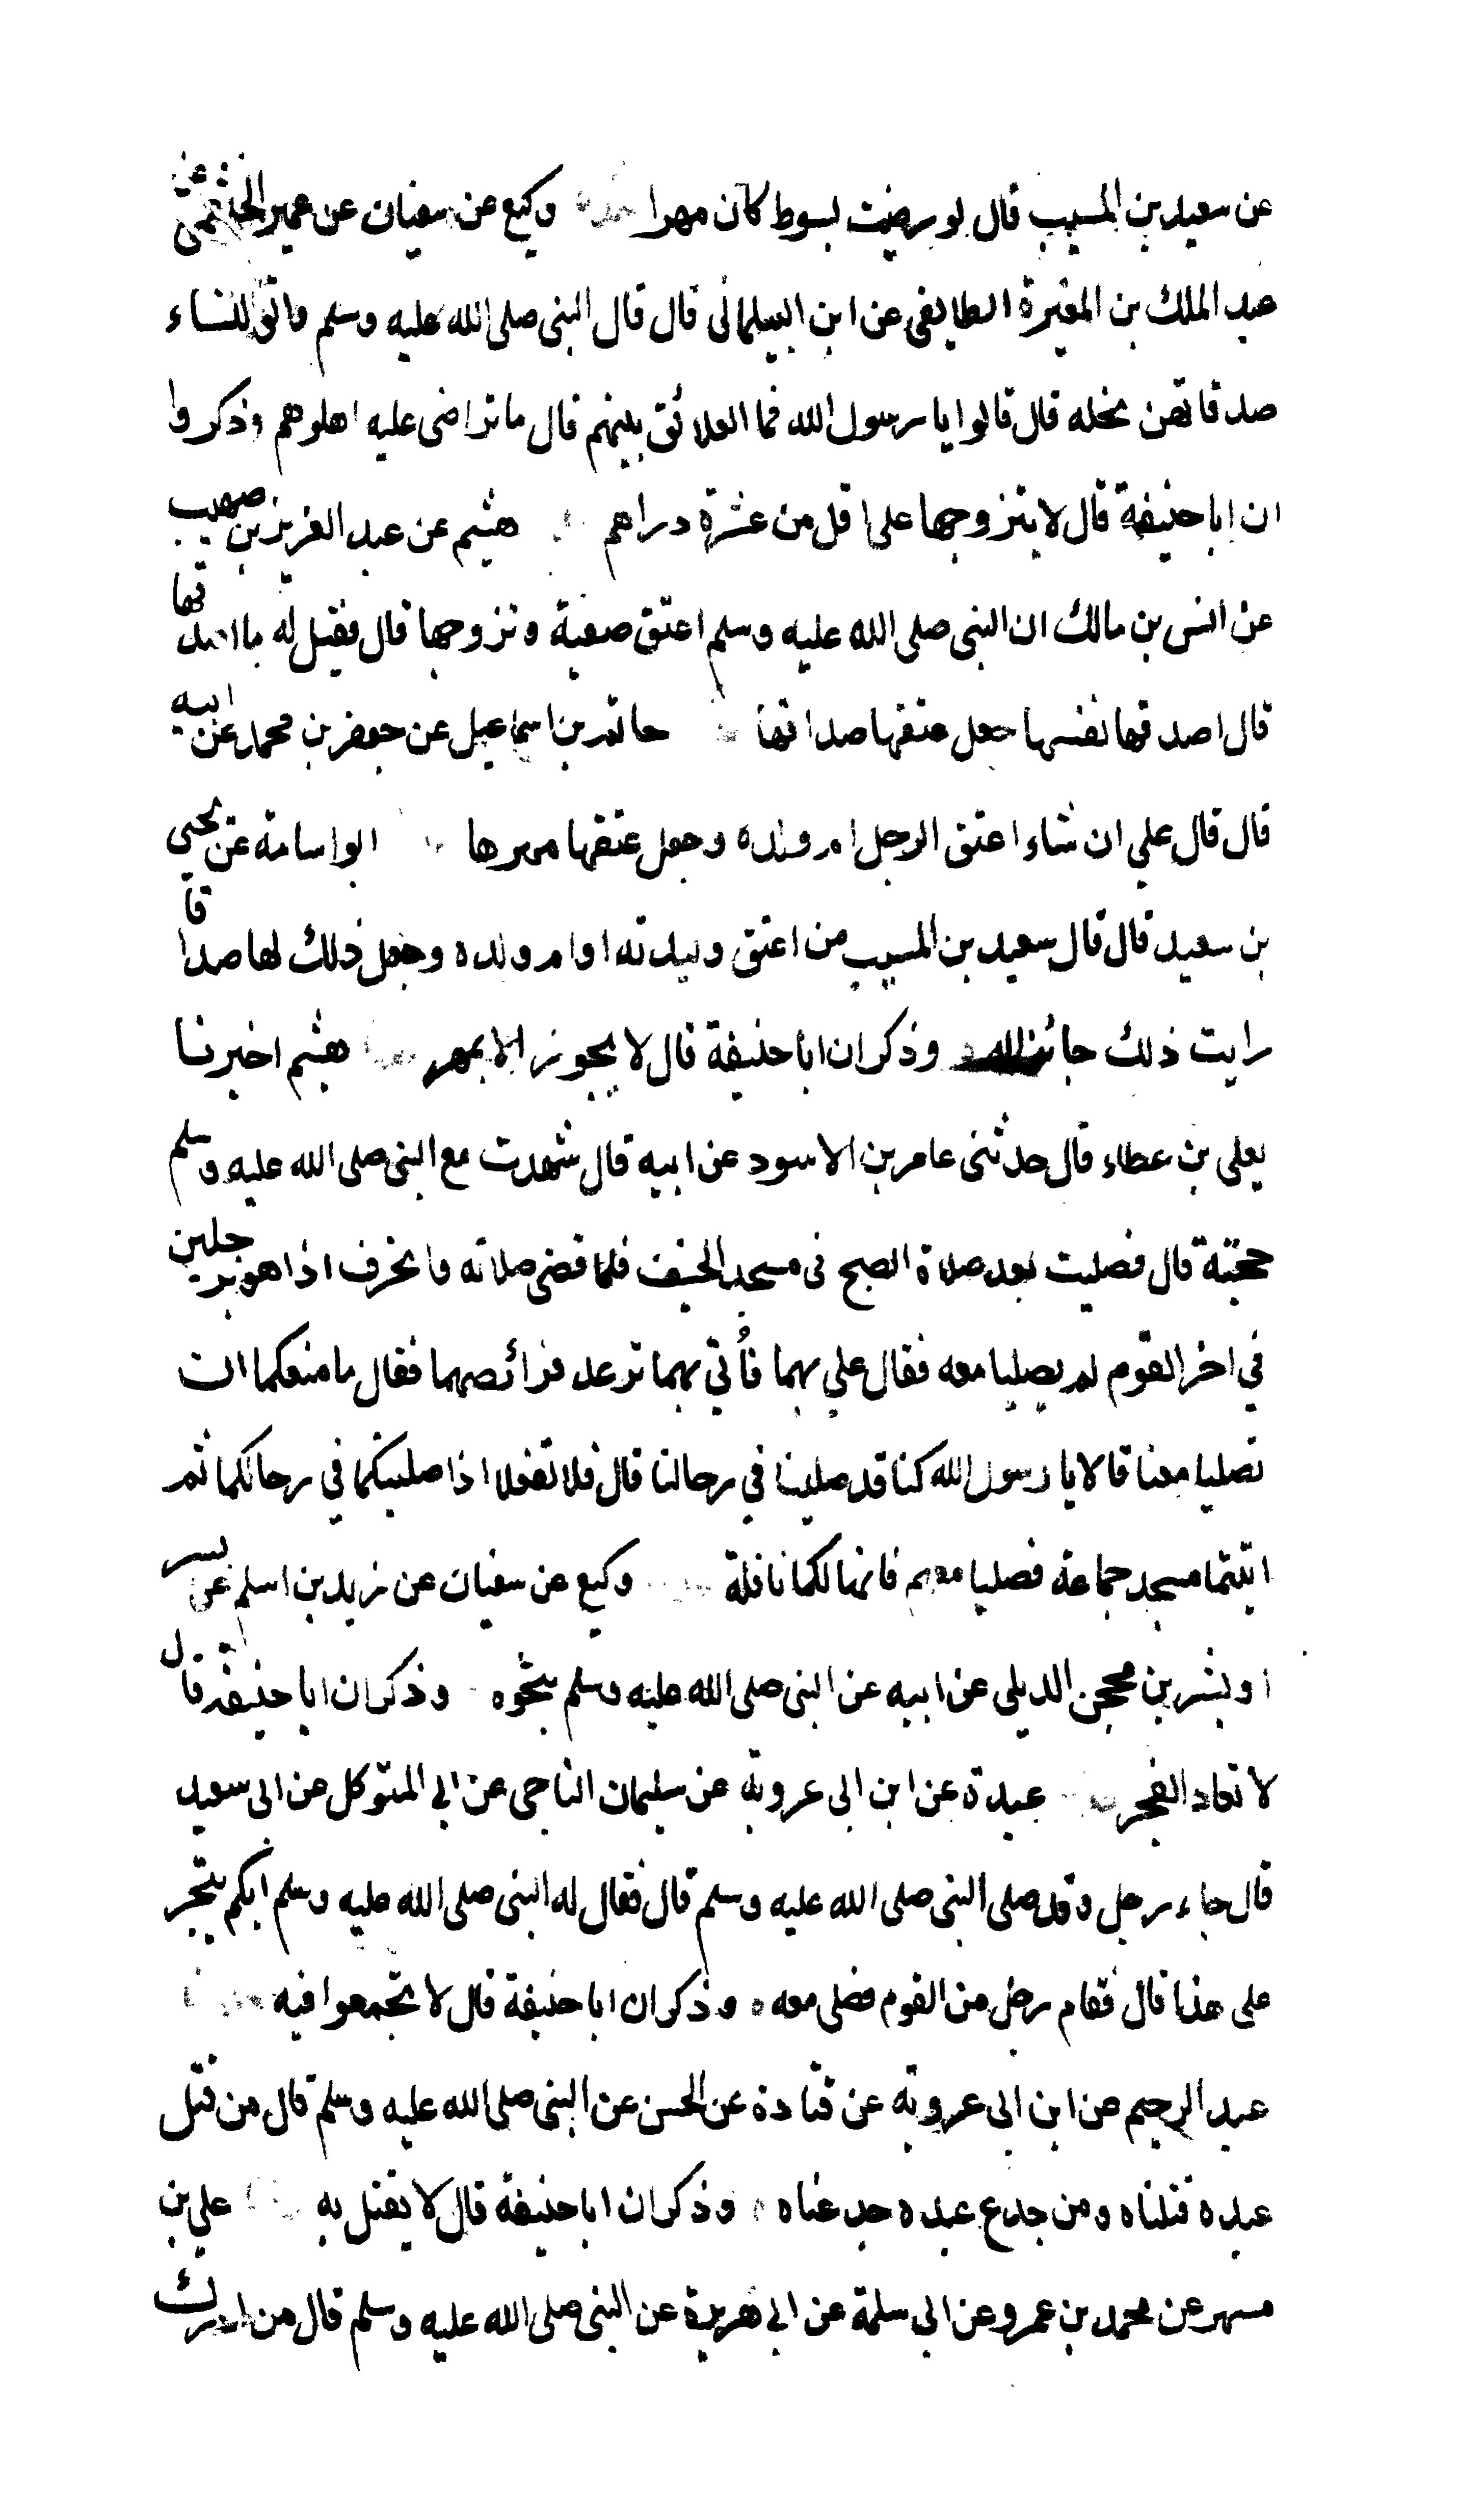 عن سعيد بن المسيب قال لو رضيت بسوط كان مهرا وكيع عن سفيان عن عمير الخثعمي
عبد الملك بن المغيرة الطايفي عن ابن البيلماني قال قال النبي صلى الله عليه وسلم واتوا النساء
صدقاتهن نحله قال قالوا يا رسول الله فما العلائق بينهم قال ما تراضى عليه اهلوهم وذكروا
ان ابا حنيفة قال لا يتزوجها على اقل من عشرة دراهم هشيم عن عبد العزيز بن صهيب
عن انس بن مالك ان النبي صلى الله عليه وسلم اعتق صفية وتزوجها قال فقيل له ما اصدقها
قال اصدقها نفسها جعل عتقها صداقها حاتم بن اسماعيل عن جعفر بن محمد عن ابيه
قال قال علي ان شاء اعتق الرجل ام ولده وجعل عتقها مهرها ابو اسامة عن يحيى
بن سعيد قال قال سعيد بن المسيب من اعتق وليدته او ام ولده وجعل ذلك لها صداقا
رايت ذلك جائز له وذكر ان ابا حنيفة قال لا يجوز الا بمهر هشيم اخبرنا
يعلى بن عطاء قال حدثني عامر بن الاسود عن ابيه قال شهدت مع النبي صلى الله عليه وسلم
حجته قال فصليت بعد صلاة الصبح في مسجد الخيف فلما قضى صلاته وانحرف اذا هو برجلين
في اخر القوم لم يصليا معه فقال علي بهما فأتي بهما ترعد فرائصهما فقال ما منعكما ان
تصليا معنا قالا يا رسول الله كنا قد صلينا في رحالنا قال فلا تفعلا اذا صليتما في رحالكما ثم
اتيتما مسجد جماعة فصليا معهم فانها لكما نافلة وكيع عن سفيان عن زيد بن اسلم عن بسر
او بشر بن محجن الديلي عن ابيه عن النبي صلى الله عليه وسلم بنحوه وذكر ان ابا حنيفة قال
لا تعاد الفجر عبدة عن ابن ابي عروبة عن سليمان الناجي عن ابي المتوكل عن ابي سعيد
قال جاء رجل وقد صلى النبي صلى الله عليه وسلم قال فقال له النبي صلى الله عليه وسلم ايكم يتجر
على هذا قال فقام رجل من القوم فصلى معه وذكر ان ابا حنيفة قال لا تجمعوا فيه
عبد الرحيم عن ابن ابي عروبة عن قتادة عن الحسن عن النبي صلى الله عليه وسلم قال من قتل
عبده قتلناه ومن جدع عبده جدعناه وذكر ان ابا حنيفة قال لا يقتل به علي بن
مسهر عن محمد بن عمرو عن ابي سلمة عن ابي هريرة عن النبي صلى الله عليه وسلم قال من ادرك